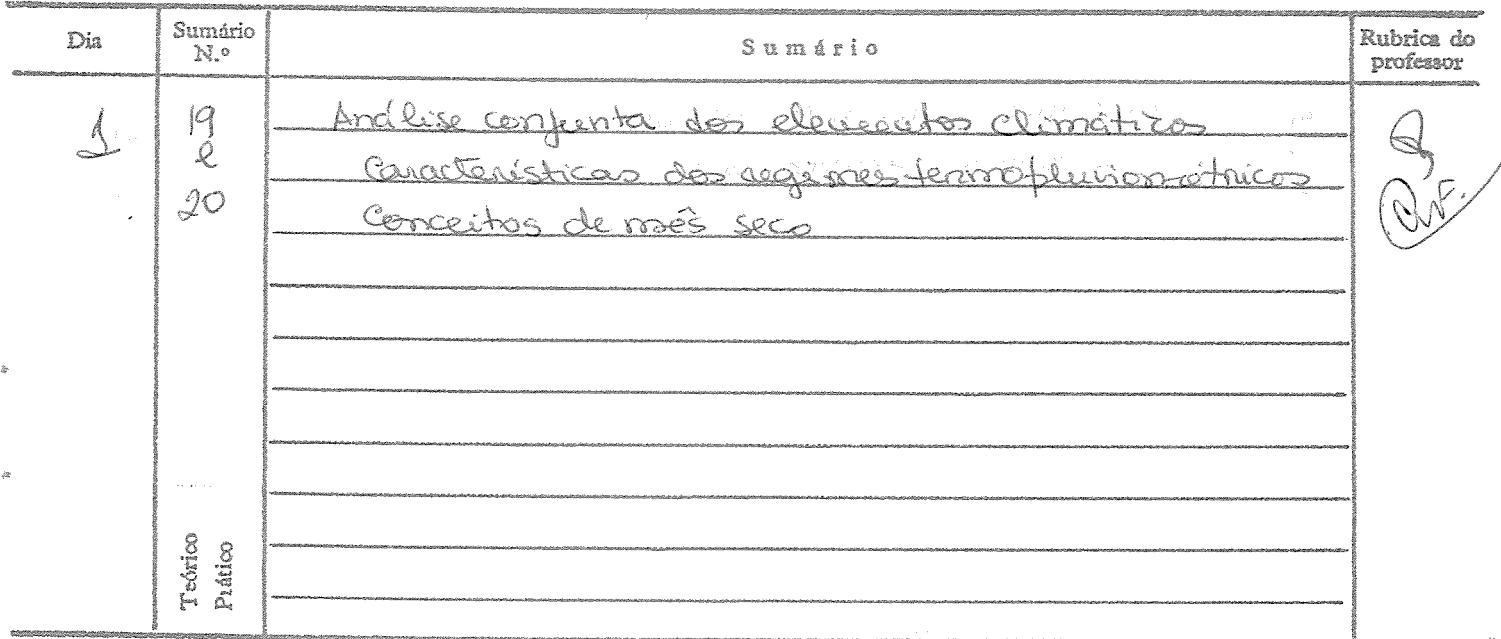 Dia
Sumário N.º
Sumário
Rubrica do professor
1
19 e 20
Análise conjunta dos elementos climáticos
Características dos regimes termopluviométricos
Conceitos de mês seco
Teórico
Prático